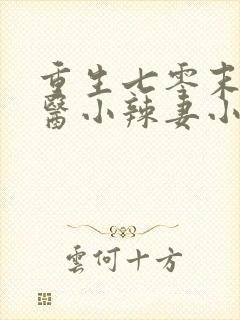 重生七零末
醫小辣妻小
雲何十方